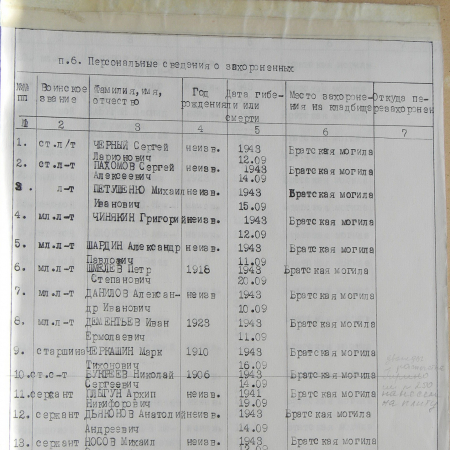 п.6. Персональные сведения о захороненных
№№ Воинское Фамилия,имя, Год Дата гибе- Место захороне- Откуда пе-
пп звание отчество рождения ли или ния на кладбище резахоронен
смерти
1 2 3 4 5 6 7
1. ст.л/т ЧЕРНЫЙ Сергей неизв. 1943 Братская могила
Ларионович 12.09
2. ст.л-т ПАХОМОВ Сергей неизв. 1943 Братская могила
Алексеевич 14.09
3. л-т ПЕТУШЕНКО Михаил неизв. 1943 Братская могила
Иванович 15.09
4. мл.л-т ЧИНЯКИН Григорий неизв. 1943 Братская могила
12.09
5. мл.л-т ШАРДИН Александр неизв. 1943 Братская могила
Павлович 11.09
6. мл.л-т ШМЕЛЕВ Петр 1918 1943 Братская могила
Степанович 20.09
7. мл.л-т ДАНИЛОВ Алексан- неизв 1943 Братская могила
др Иванович 10.09
8. мл.л-т ДЕМЕНТЬЕВ Иван 1923 1943 Братская могила
Ермолаевич 11.09
9. старшина ЧЕРКАШИН Марк 1910 1943 Братская могила
Тихонович 16.09
10. ст.с-т Николай 1906 1943 Братская могила
Сергеевич 14.09
11. сержант Архип неизв. 1941 Братская могила
Никифорович 19.09
12. сержант ДЬЯКОНОВ Анатолий неизв. 1943 Братская могила
Андреевич 14.09
13. сержант НОСОВ Михаил неизв. 1943 Братская могила